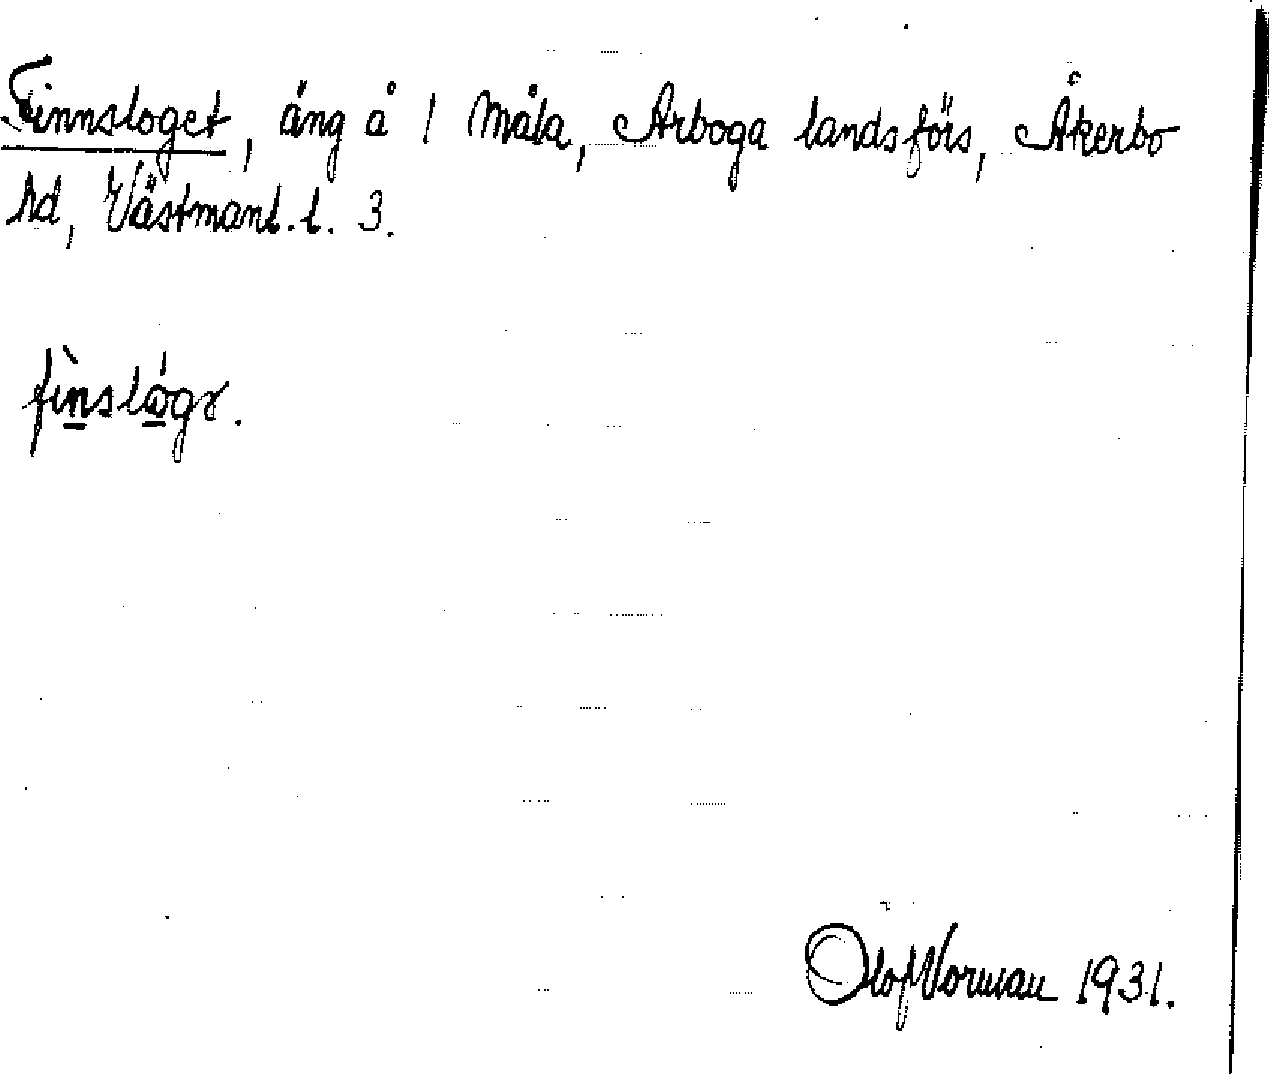 Finnsloget, äng å 1 Måla, Arboga landsförs, Åkerbo
hd, Västmanl. l. 3.
fìnslógr.
Olof Norman 1931.